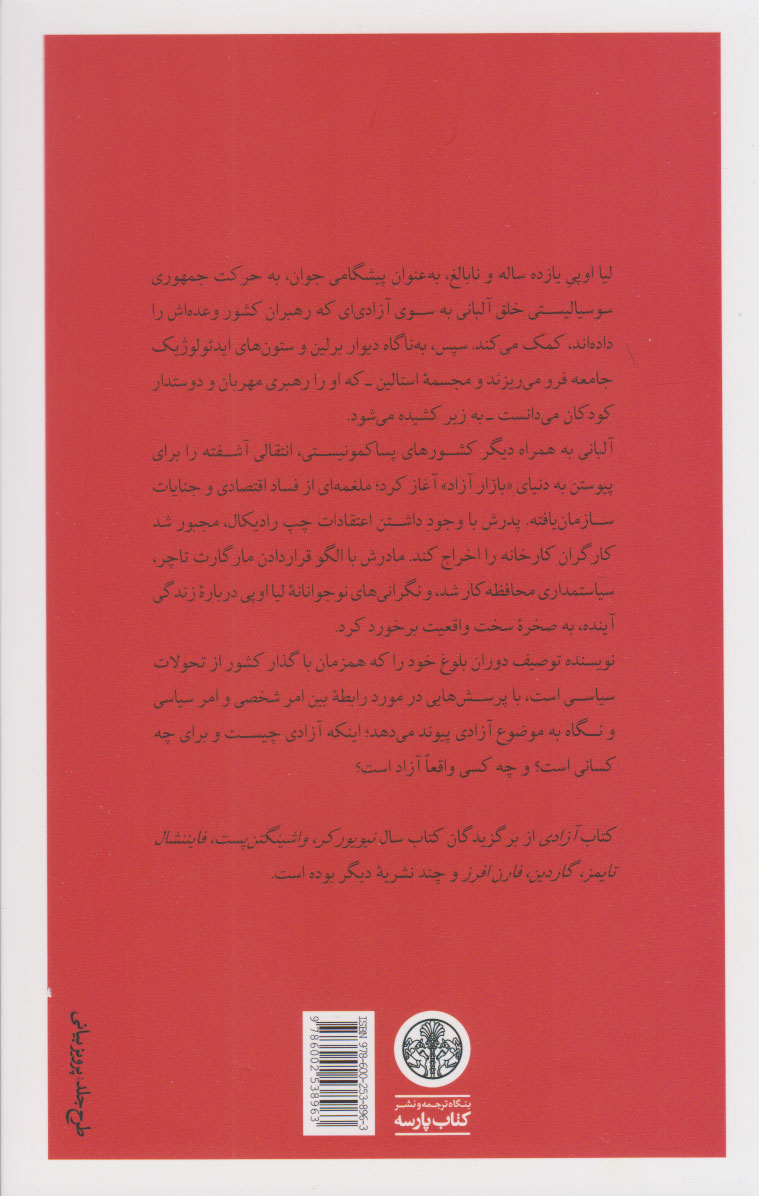 لیا اوپیِ یازده ساله و نابالغ، به‌عنوان پیشگامی جوان، به حرکت جمهوری
سوسیالیستی خلق آلبانی به سوی آزادی‌ای که رهبران کشور وعده‌اش را
داده‌اند، کمک می‌کند. سپس، به‌ناگاه دیوار برلین و ستون‌های ایدئولوژیک
جامعه فرو می‌ریزند و مجسمهٔ استالین ـ که او را رهبری مهربان و دوستدار
کودکان می‌دانست ـ به زیر کشیده می‌شود.
آلبانی به همراه دیگر کشورهای پساکمونیستی، انتقالی آشفته را برای
پیوستن به دنیای «بازار آزاد» آغاز کرد؛ ملغمه‌ای از فساد اقتصادی و جنایات
سازمان‌یافته. پدرش با وجودِ داشتن اعتقادات چپ رادیکال، مجبور شد
کارگران کارخانه را اخراج کند. مادرش با الگو قراردادن مارگارت تاچر،
سیاستمداری محافظه‌کار شد، و نگرانی‌های نوجوانانهٔ لیا اوپی دربارهٔ زندگی
آینده، به صخرهٔ سخت واقعیت برخورد کرد.
نویسنده توصیف دوران بلوغ خود را که همزمان با گذار کشور از تحولات
سیاسی است، با پرسش‌هایی در مورد رابطهٔ بین امر شخصی و امر سیاسی
و نگاه به موضوع آزادی پیوند می‌دهد؛ اینکه آزادی چیست و برای چه
کسانی است؟ و چه کسی واقعاً آزاد است؟
کتاب آزادی از برگزیدگان کتاب سال نیویورکر، واشینگتن‌پست، فایننشال
تایمز، گاردین، فارن افرز و چند نشریهٔ دیگر بوده است.
طرح جلد: پرویز بیانی
ISBN 978-600-253-896-3
9 786002 538963
بنگاه ترجمه و نشر
کتاب پارسه